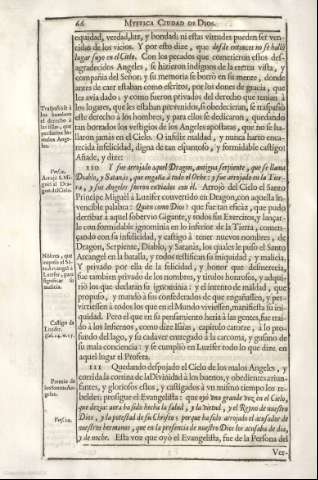 66 MYSTICA CIUDAD DE DIOS.
equidad, verdad, luz, y bondad; ni estas virtudes pueden ser ven-
cidas de los vicios. Y por esto dize, que desde entonces no se hallò
lugar suyo en el Cielo. Con los pecados que cometieron estos des-
agradecidos Angeles, se hizieron indignos de la eterna vista, y
compañia del Señor, y su memoria se borrò en su mente, donde
antes de caer estaban como escritos, por los dones de gracia, que
les avia dado; y como fueron privados del derecho que tenian à
los lugares, que les estaban prevenidos, si obedecieran, se traspassò
este derecho à los hombres, y para ellos se dedicaron, quedando
tan borrados los vestigios de los Angeles apostatas, que no se ha-
llaràn jamàs en el Cielo. O infeliz maldad, y nunca harto enca-
recida infelicidad, digna de tan espantoso, y formidable castigo!
Añade, y dize:
110 Y fue arrojado aquel Dragon, antigua serpiente, que se llama
Diablo, y Satanàs, que engaña à todo el Orbe; y fue arrojado en la Tier-
ra, y sus Angeles fueron embiados con èl. Arrojò del Cielo el Santo
Principe Miguèl à Luzifer convertido en Dragon, con aquella in-
vencible palabra: Quien como Dios? que fue tan eficàz, que pudo
derribar à aquel sobervio Gigante, y todos sus Exercitos, y lançar-
le con formidable ignominia en lo inferior de la Tierra, comen-
çando con su infelicidad, y castigo à tener nuevos nombres, de
Dragon, Serpiente, Diablo, y Satanàs, los quales le puso el Santo
Arcangel en la batalla, y todos testifican su iniquidad, y malicia.
Y privado por ella de la felicidad, y honor que desmerecia,
fue tambien privado de los nombres, y titulos honrosos, y adqui-
riò los que declaran su ignominia; y el intento de maldad, que
propuso, y mandò à sus confederados de que engañassen, y per-
virtiessen à todos los que en el Mundo viviessen, manifiesta su ini-
quidad. Pero el que en su pensamiento heria à las gentes, fue trai-
do à los Infiernos, como dize Isaìas, capitulo catorze, à lo pro-
fundo del lago, y su cadaver entregado à la carcoma, y gusano de
su mala conciencia; y se cumpliò en Luzifer todo lo que dize en
aquel lugar el Profeta.
111 Quedando despojado el Cielo de los malos Angeles, y
corrida la cortina de la Divinidad à los buenos, y obedientes, triun-
fantes, y gloriosos estos, y castigados à un mismo tiempo los re-
beldes; prosigue el Evangelista: que oyò una grande voz en el Cielo,
que dezia: aora ha sido hecha la salud, y la virtud, y el Reyno de nuestro
Dios, y la potestad de su Christo; porque ha sido arrojado el acusador de
nuestros hermanos, que en la presencia de nuestro Dios los acusaba de dia,
y de noche. Esta voz que oyò el Evangelista, fue de la Persona del
Ver-
Traspassòse à
los hombres
el derecho à
las sillas, que
perdieron los
malos Ange-
les.
Vers. 9.
Arrojò S. Mi-
guèl al Dra-
gon del Cielo.
Castigo de
Luzifer.
Isai. 14. v. 15.
Premio de
los buenos An-
geles.
Vers. 10.